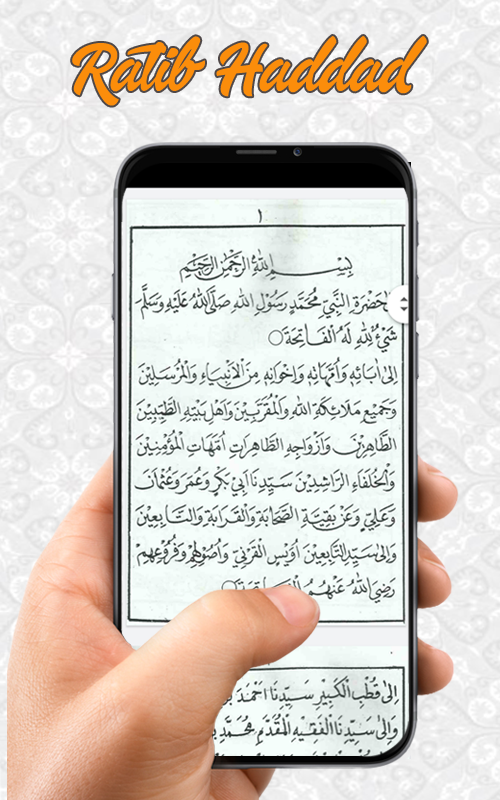 Ratib Haddad
١
بِسْمِ اللهِ الرَّحْمٰنِ الرَّحِيْمِ
حَضْرَةِ النَّبِيِّ مُحَمَّدٍ رَسُوْلِ اللهِ صَلَّى اللهُ عَلَيْهِ وَسَلَّمَ
شَيْءٌ لِلّٰهِ لَهُ الْفَاتِحَةَ
اِلَى اٰبَائِهِ وَاُمَّهَاتِهِ وَاِخْوَانِهِ مِنَ الْاَنْبِيَاءِ وَالْمُرْسَلِيْنَ
وَجَمِيْعِ مَلَائِكَةِ اللهِ وَالْمُقَرَّبِيْنَ وَاَهْلِ بَيْتِهِ الطَّيِّبِيْنَ
الطَّاهِرِيْنَ وَاَزْوَاجِهِ الطَّاهِرَاتِ اُمَّهَاتِ الْمُؤْمِنِيْنَ
وَالْخُلَفَاءِ الرَّاشِدِيْنَ سَيِّدِنَا اَبِيْ بَكْرٍ وَعُمَرَ وَعُثْمَانَ
وَعَلِيٍّ وَعَنْ بَقِيَّةِ الصَّحَابَةِ وَالْقَرَابَةِ وَالتَّابِعِيْنَ
وَاِلَى سَيِّدِ التَّابِعِيْنَ اُوَيْسِ الْقَرَنِيِّ وَاُصُوْلِهِمْ وَفُرُوْعِهِمْ
رَضِيَ اللهُ عَنْهُمُ
اِلَى قُطْبِ الْكَبِيْرِ سَيِّدِنَا اَحْمَدَ
وَاِلَى سَيِّدِنَا الْفَقِيْهِ الْمُقَدَّمِ مُحَمَّدِ